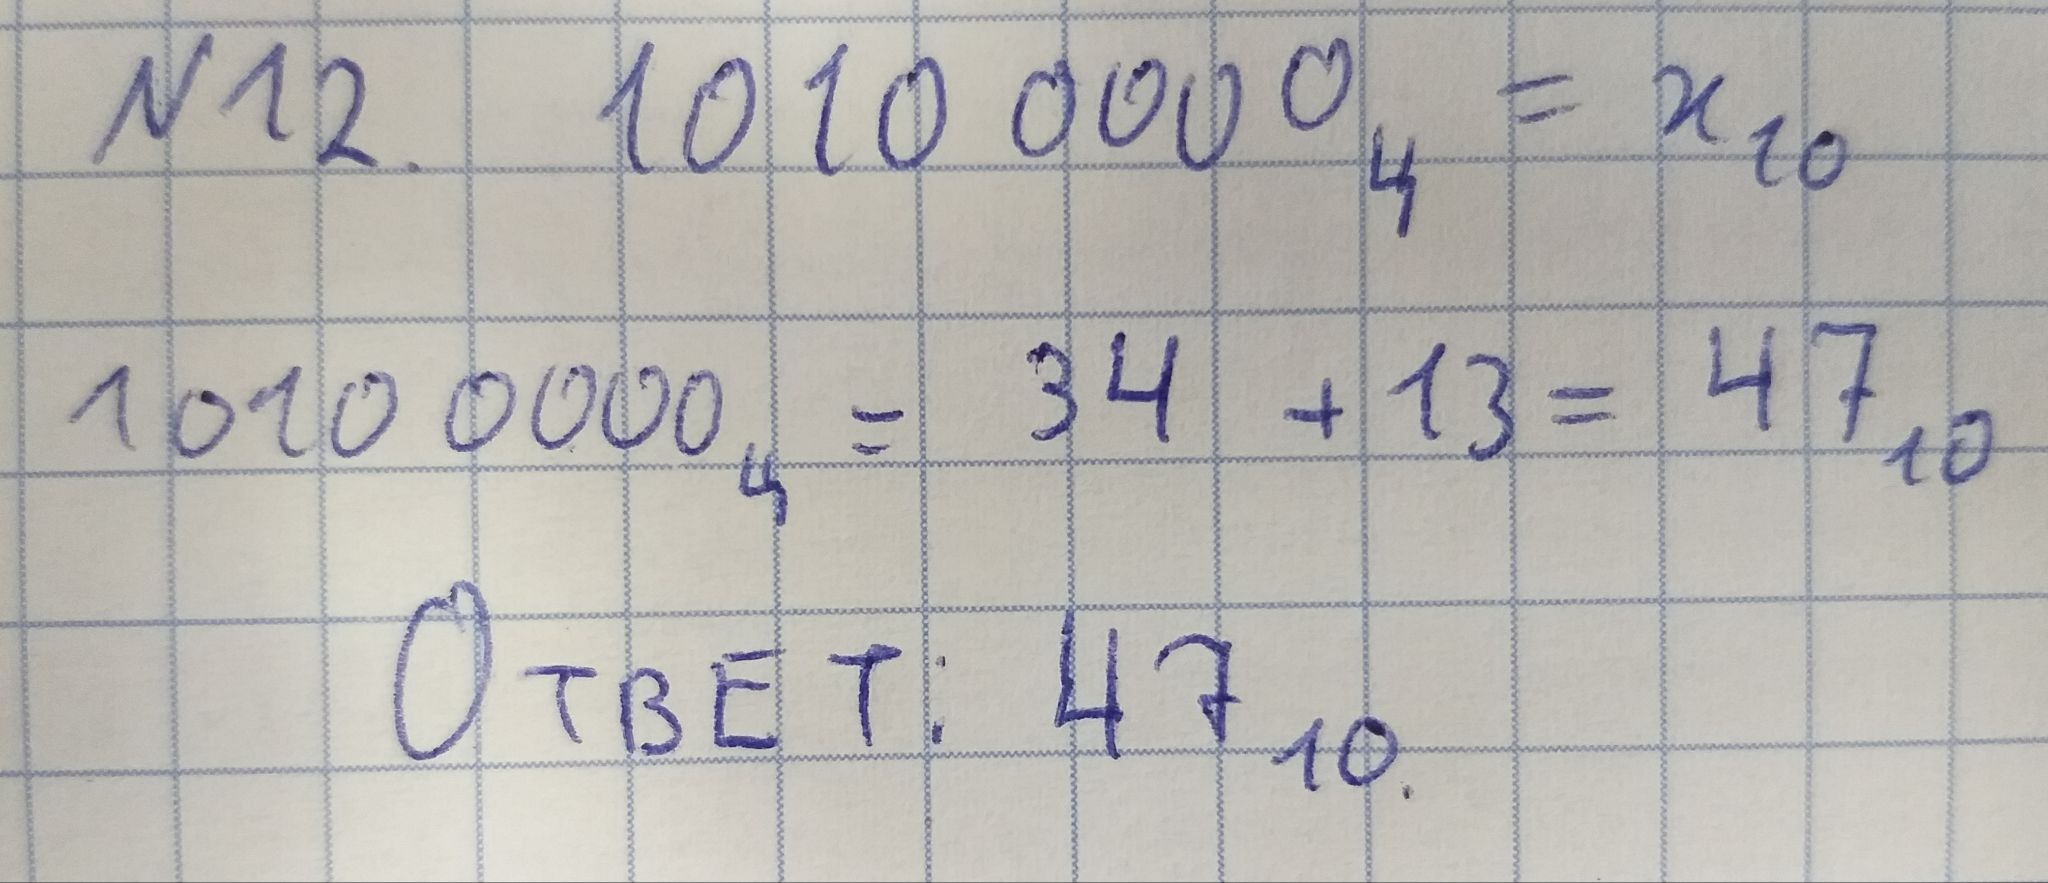 N12. 10100000₄ = x₁₀
10100000₄ = 34 + 13 = 47₁₀
Ответ: 47₁₀.